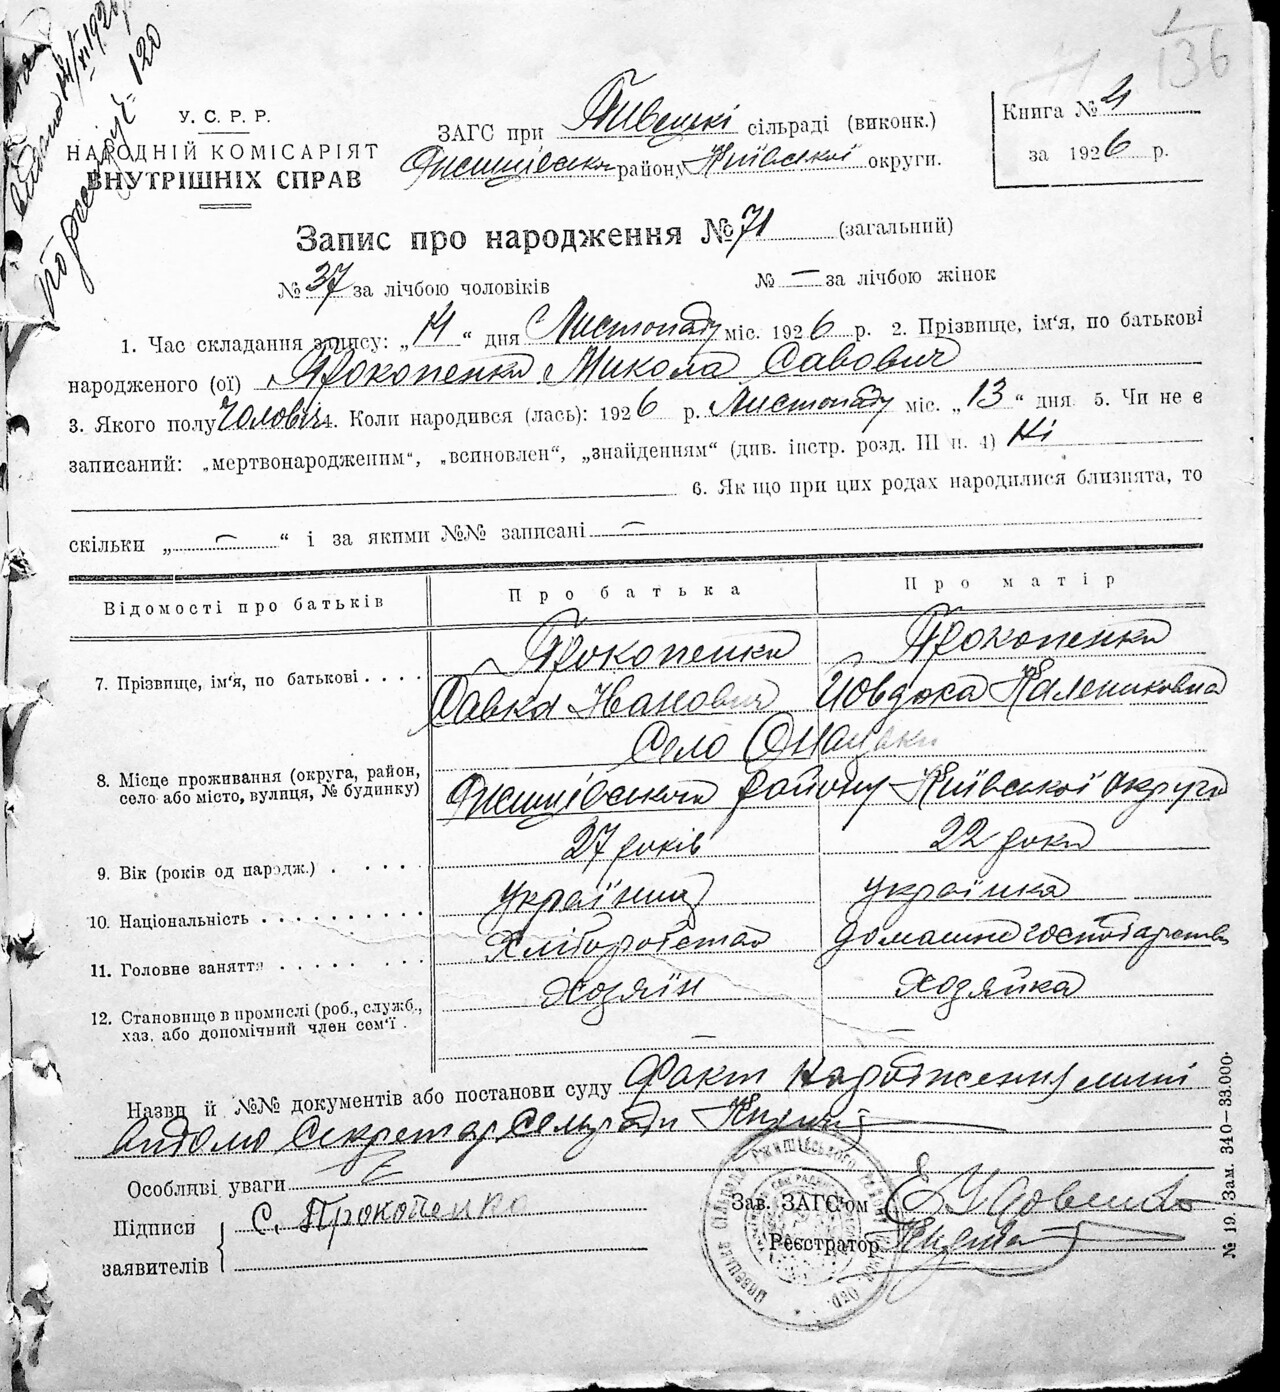 136
У. С. Р. Р.
НАРОДНІЙ КОМІСАРІЯТ
ВНУТРІШНІХ СПРАВ
ЗАГС при сільраді (виконк.)
району Київської округи.
Книга №
за 1926 р.
Запис про народження № 71 (загальний)
№ 37 за лічбою чоловіків
№ — за лічбою жінок
1. Час складання запису: „14“ дня Листопаду міс. 1926 р. 2. Прізвище, ім‘я, по батькові
народженого (ої) Прокопенко Микола Савович
3. Якого полу Чоловіч 4. Коли народився (лась): 1926 р. Листопаду міс. „13“ дня. 5. Чи не є
записаний: „мертвонародженим“, „всиновлен“, „знайденням“ (див. інстр. розд. III п. 4) Ні
6. Як що при цих родах народилися близнята, то
скільки „ — “ і за якими №№ записані —
Відомості про батьків
Про батька
Про матір
7. Прізвище, ім‘я, по батькові . . . .
Прокопенко
Савка Іванович
Прокопенко
Йовдоха Калениковна
8. Місце проживання (округа, район,
село або місто, вулиця, № будинку)
Село
району Київської округи
9. Вік (років од народж.) . . . .
27 років
22 роки
10. Національність . . . . . . . . .
Українец
українка
11. Головне заняття . . . . . . .
Хліборобство
домашнє господарство
12. Становище в промислі (роб., служб.,
хаз. або допомічний член сем‘ї .
Хозяїн
Хозяйка
Назви й №№ документів або постанови суду Факт народження мині
відомо Секретар Сельради
Особливі уваги
Підписи
заявителів
С. Прокопенко
Зав. ЗАГС‘ом
Реєстратор
№ 19. Зам. 340—33.000.